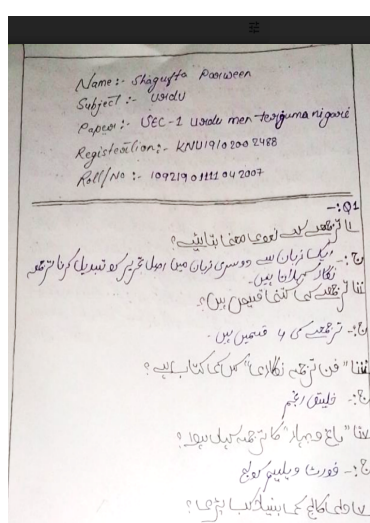 Name :- Shagufta Parween
Subject :- Urdu
Paper :- SEC-1 Urdu men terjuma nigari
Registration :- KNU1910 200 2488
Roll/No :- 109219 01111 04 2007
Q1:-
i) ترجمعے کے لغوی معنی بتایئے؟
ج:- ایک زبان سے دوسری زبان میں اصل تحریر کو تبدیل کرنا ترجمہ
نگار کہلاتا ہیں۔
ii) ترجمعے کی کتنی قسمیں ہیں؟
ج:- ترجمعے کی 4 قسمیں ہیں۔
iii) "فن ترجمہ نگاری" کس کی کتاب ہے؟
ج:- خلیق انجم
iv) "باغ و بہار" کا ترجمہ کہاں ہوا؟
ج:- فورٹ ویلیم کولج
v) دلی کالج کی بنیاد کب پڑی؟